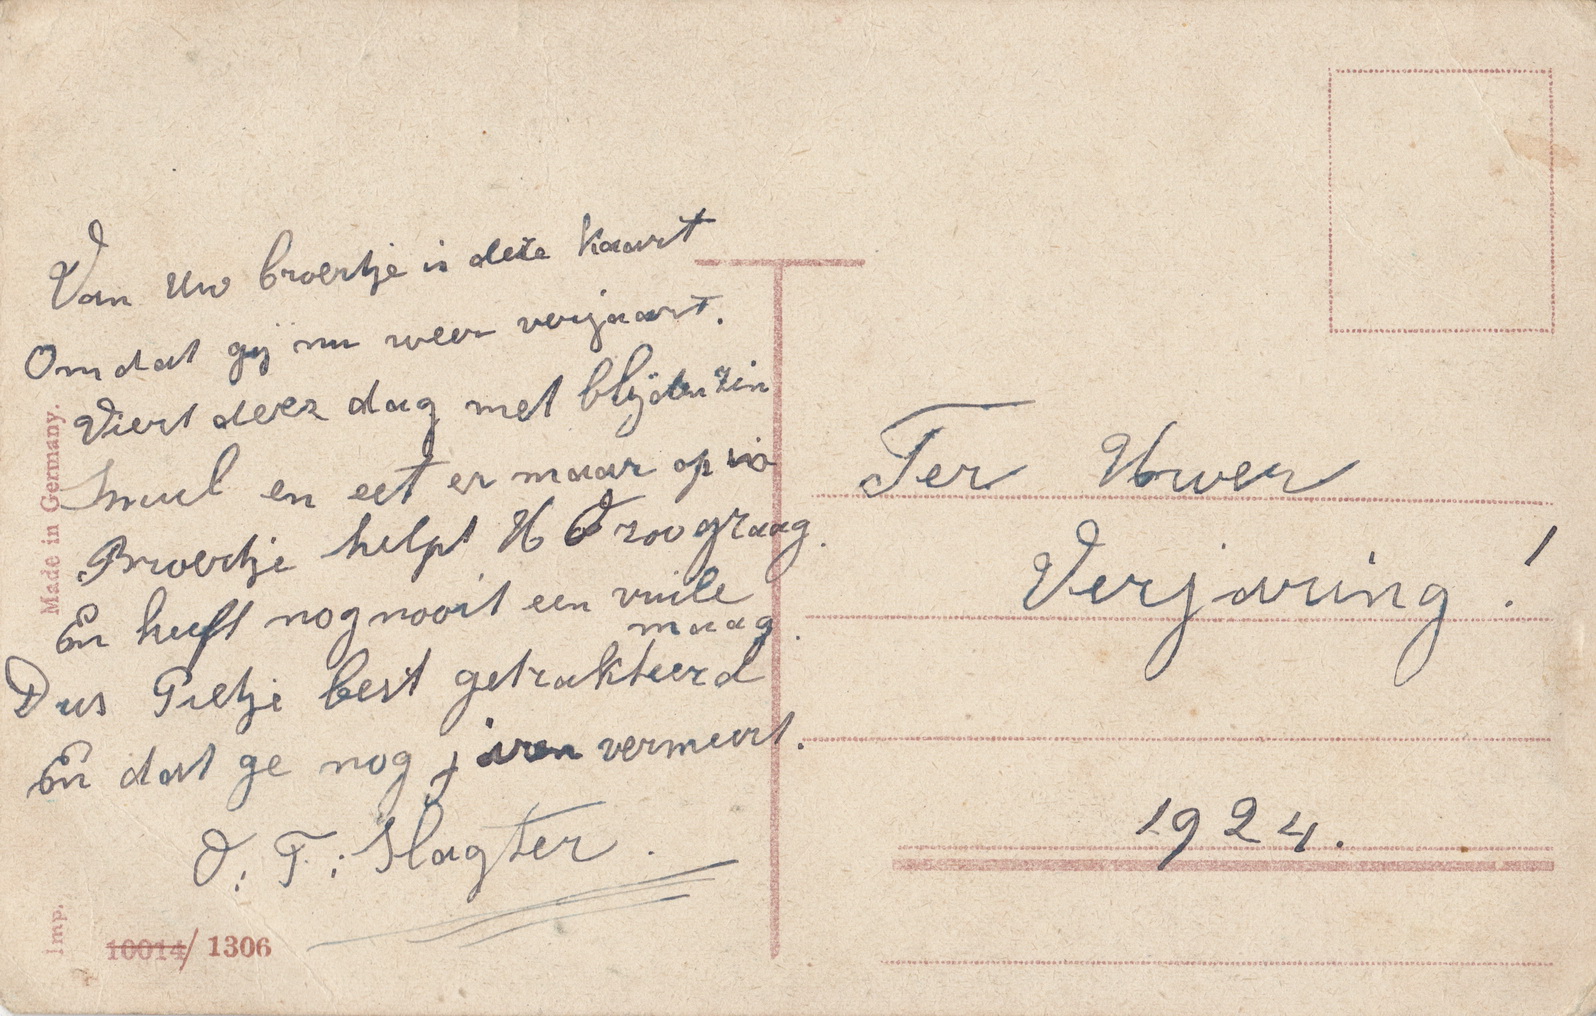 Van Uw broertje is deze kaart
Omdat gij nu weer verjaart.
Viert deez dag met blijden zin
Smul en eet er maar op in
Broertje helpt U zoo graag.
En heeft nog nooit een vuile
maag.
Dus Pietje best getrakteerd
En dat ge nog jaren vermeert.
J: F: Slagter.
Ter Uwer
Verjaring!
1924.
Made in Germany.
Imp.
10014/ 1306